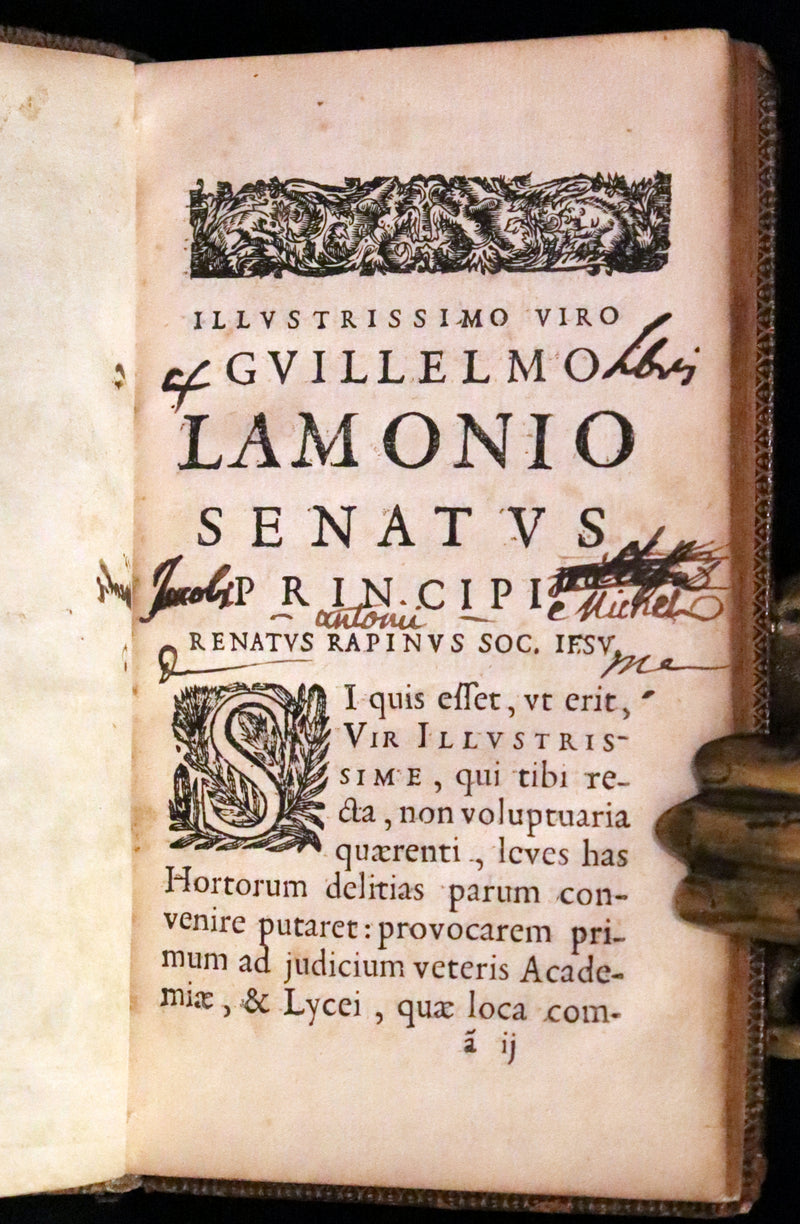 ILLVSTRISSIMO VIRO
ex GVILLELMO libris
LAMONIO
SENATVS
Jacobi PRINCIPI
antonii Michel
RENATVS RAPINVS SOC. IESV,
SI quis esset, vt erit,
VIR ILLVSTRIS-
SIME, qui tibi re-
cta, non voluptuaria
quærenti, leves has
Hortorum delitias parum con-
venire putaret: provocarem pri-
mum ad judicium veteris Acade-
miæ, & Lycei, quæ loca com-
ã ij